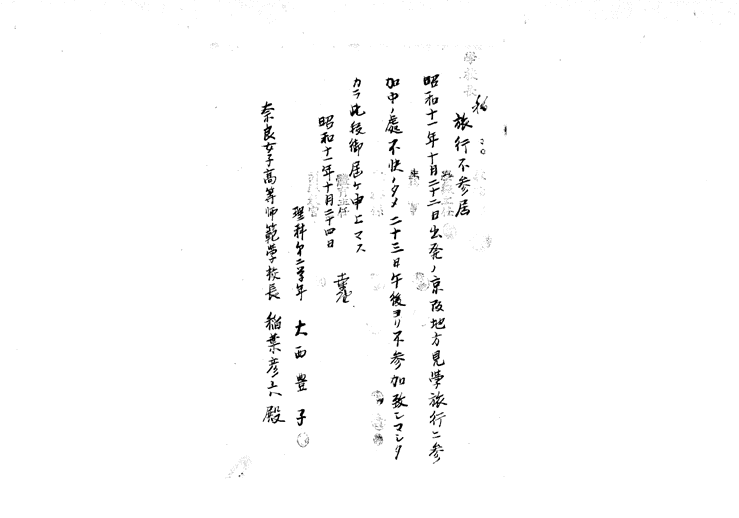 學校長
旅行不参届
昭和十一年十月二十二日出発ノ京阪地方見學旅行ニ参
加中ノ處不快ノタメ二十三日午後ヨリ不参加致シマシタ
カラ此段御届ケ申上マス
昭和十一年十月二十四日
理科第二学年 大西豊子
奈良女子高等師範學校長 稲葉彦六殿